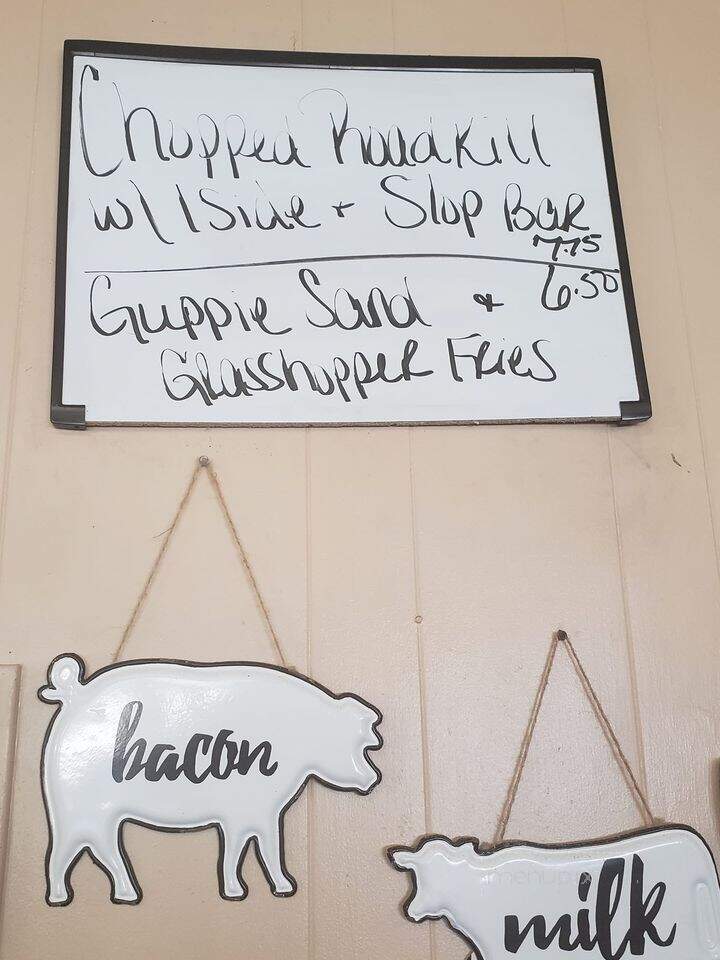 Chopped Roadkill
w/ 1 Side + Slop Bar
7.75
Guppie Sand + 6.50
Grasshopper Fries
bacon
milk